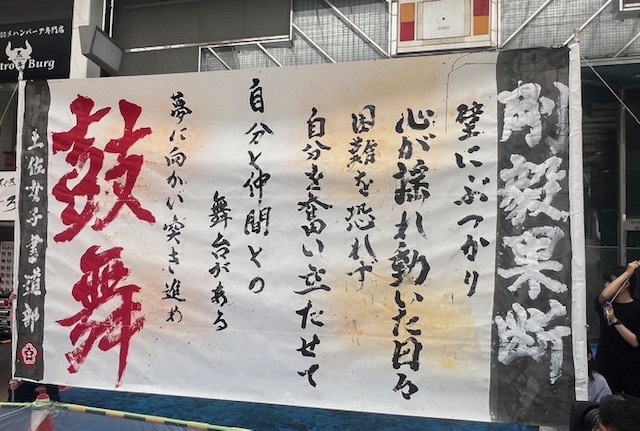 剛毅果断
壁にぶつかり
心が揺れ動いた日々
困難を恐れず
自分を奮い立たせて
自分と仲間との
舞台がある
夢に向かい突き進め
鼓舞
土佐女子書道部
ハンバーグ専門店
Burg